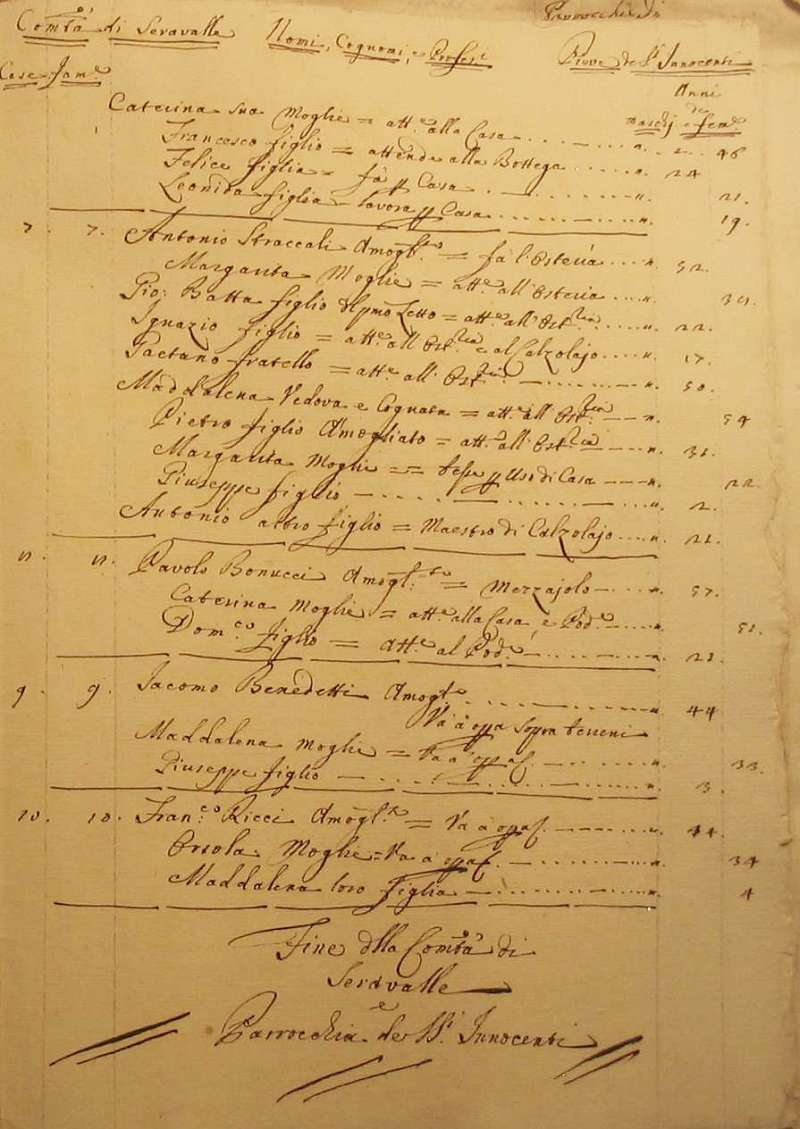 Com.tà di Seravalle
Nomi, Cognomi, e Profesi
Parrocchia di
Pieve de SS. Innocenti
Case Fam.e
Anni
de
Maschj e Fem.e
Caterina sua Moglie = att.e alla Casa 46
Francesco figlio = attende alla Bottega 24
Felice figlia = fà p Casa 21.
Leonida figlia = lavora p Casa 19.
7. 7. Antonio Straccali Amogl.to = fà l'Osteria 52.
Margarita Moglie = att.e all'Osteria
Gio: Batta figlio = att.e all'Ost.ria 22.
Ignazio figlio = att.e all'Ost.ria e al Calzolajo 17.
Gaetano fratello = att.e all'Ost.ria 50.
Maddalena Vedova e Cognata = att.e all'Ost.ria 54
Pietro figlio Amogliato = att.e all'Ost.ria 31.
Margarita Moglie = tesse p Uso di Casa 22.
Giuseppe figlio 2.
Antonio altro figlio = Maestro di Calzolajo 21.
Pavolo Bonucci Amogl.to = Mezzajolo 57.
Caterina Moglie = att.e alla Casa, e Pod.e 51.
Dom.co figlio = att.e al Pod.e 21.
9. 9. Iacomo Benedetti Amogl.to 44
Và à opra sopra terreni
Maddalena Moglie = Và a 33.
Giuseppe figlio 3.
10. 10. Fran.co Ricci Amogl.to = Và a 44.
Orsola Moglie = Va a 34
Maddalena loro figlia 4
Fine dlla Com.tà di
Seravalle
e
Parrocchia de SS. Innocenti